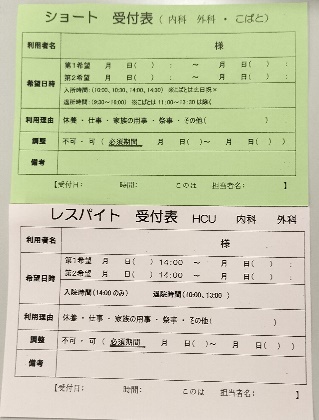 ショート 受付表(内科 外科・こばと)
利用者名 様
希望日時 第1希望 月 日( ) : ~ 月 日( ) :
第2希望 月 日( ) : ~ 月 日( ) :
入所時間:(10:00、10:30、14:00、14:30) ※こばとは土日祝×
退所時間(9:30~16:00) ※こばとは11:00~13:30は除く
利用理由 休養・仕事・家族の用事・祭事・その他( )
調整 不可・可(必須期間 月 日( )~ 月 日( ))
備考
【受付日: 時間: このは 担当者名: 】
レスパイト 受付表 HCU 内科 外科
利用者名 様
希望日時 第1希望 月 日( ) 14:00 ~ 月 日( ) :
第2希望 月 日( ) 14:00 ~ 月 日( ) :
入院時間(14:00のみ) 退院時間(10:00、13:00)
利用理由 休養・仕事・家族の用事・祭事・その他( )
調整 不可・可(必須期間 月 日( )~ 月 日( ))
備考
【受付日: 時間: このは 担当者名: 】